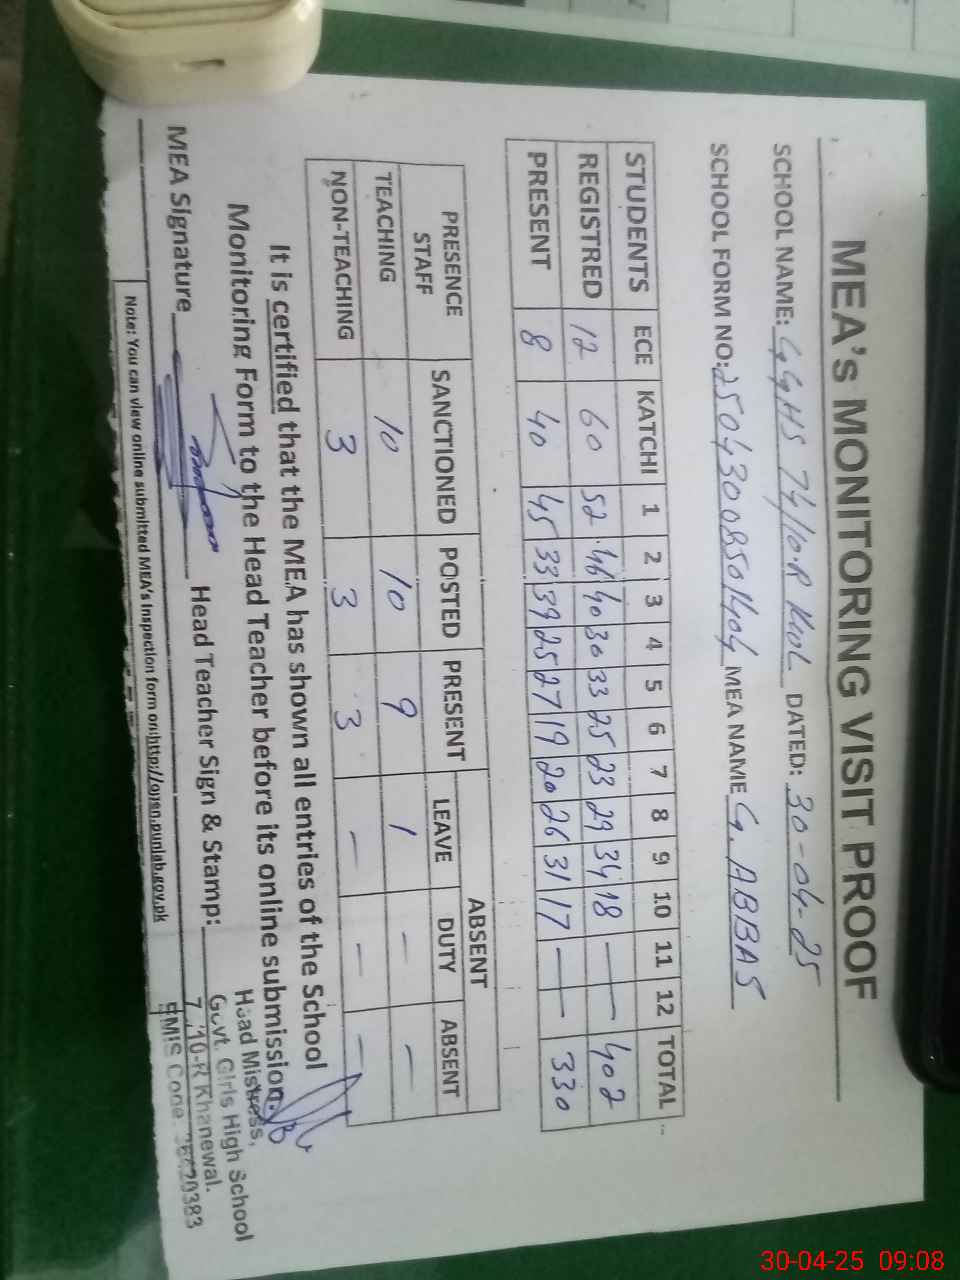 MEA's MONITORING VISIT PROOF
SCHOOL NAME: GGHS 74/10.R Kwl DATED: 30-04-25
SCHOOL FORM NO: MEA NAME G. ABBAS
STUDENTS ECE KATCHI 1 2 3 4 5 6 7 8 9 10 11 12 TOTAL
REGISTRED 12 60 52 46 40 30 33 25 23 29 34 18 — — 402
PRESENT 8 40 45 33 39 25 27 19 20 26 31 17 — — 330
PRESENCE STAFF SANCTIONED POSTED PRESENT ABSENT
LEAVE DUTY ABSENT
TEACHING 10 10 9 1 — —
NON-TEACHING 3 3 3 — — —
It is certified that the MEA has shown all entries of the School
Monitoring Form to the Head Teacher before its online submission.
MEA Signature Head Teacher Sign & Stamp:
Head Mistress,
Govt. Girls High School
10-R Khanewal.
EMIS Code.
Note: You can view online submitted MEA's Inspection form on:http://open.punjab.gov.pk
30-04-25 09:08